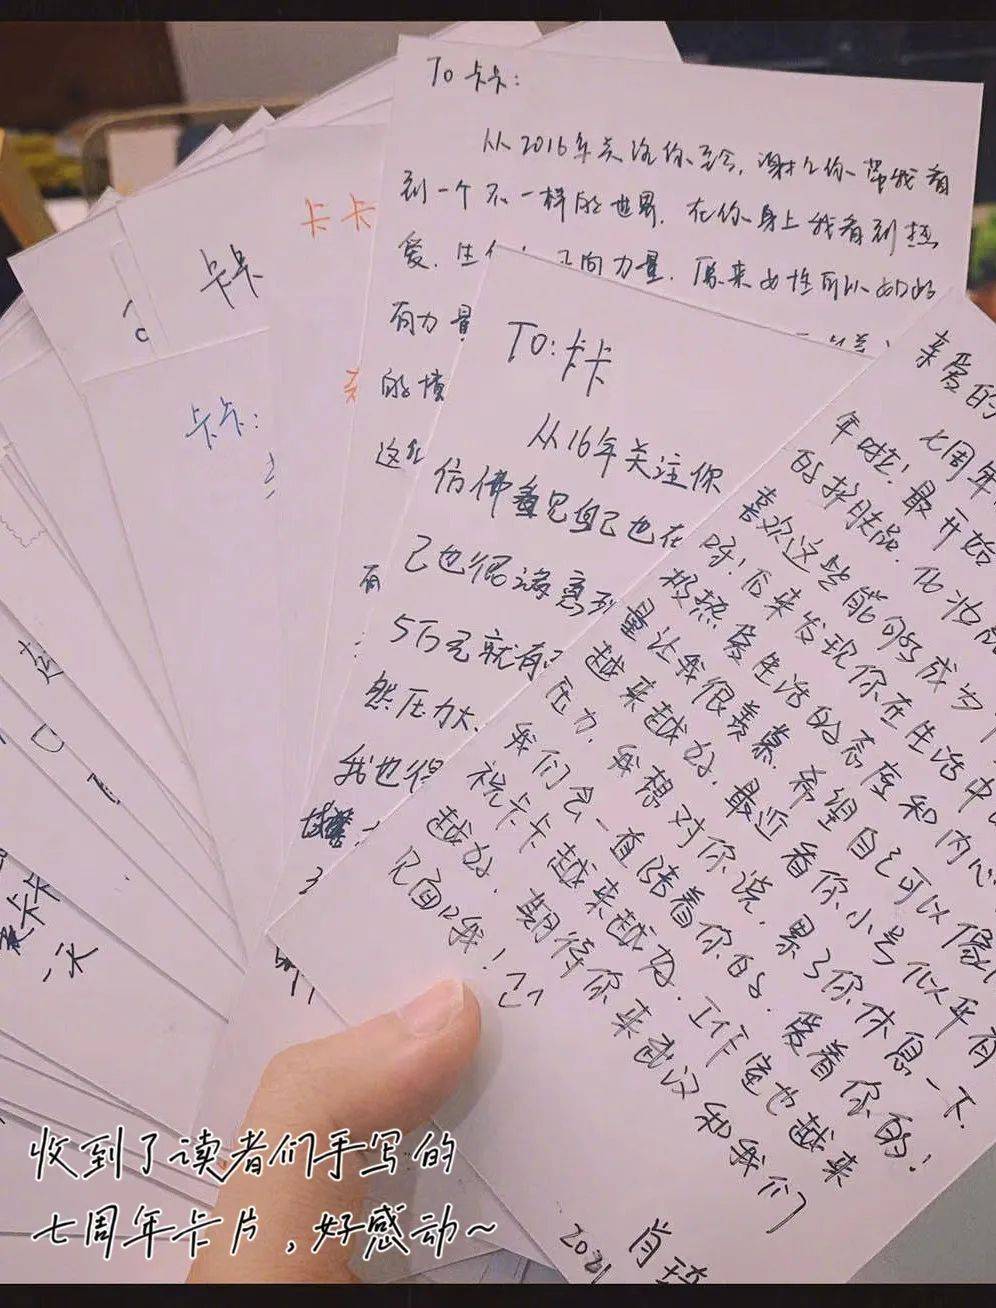 To 卡卡：
从2016年关注你至今，谢谢你带我看
到一个不一样的世界．在你身上我看到热
爱．生 正向力量．原来女性可以如此
有力量
的
这
卡卡
卡卡
卡卡：
TO：卡卡
从16年关注你
仿佛看见自己也在
己也很满意
5万已就有
然压力大
我也很
亲爱的
七周年
年啦！最开始
的护肤品．化妆品
喜欢这些能够成为
呀！后来发现你在生活中
极热爱生活的态度和内心
量让我很羡慕．希望自己可以像
越来越好．最近看你小号似乎有
压力．我想对你说．累了你休息一下．
我们会一直陪着你的．爱着你的！
祝卡卡越来越好．工作室也越来
越好．期待你来武汉和我们
见面口我！
肖
2021
卡卡
一次
收到了读者们手写的
七周年卡片，好感动~